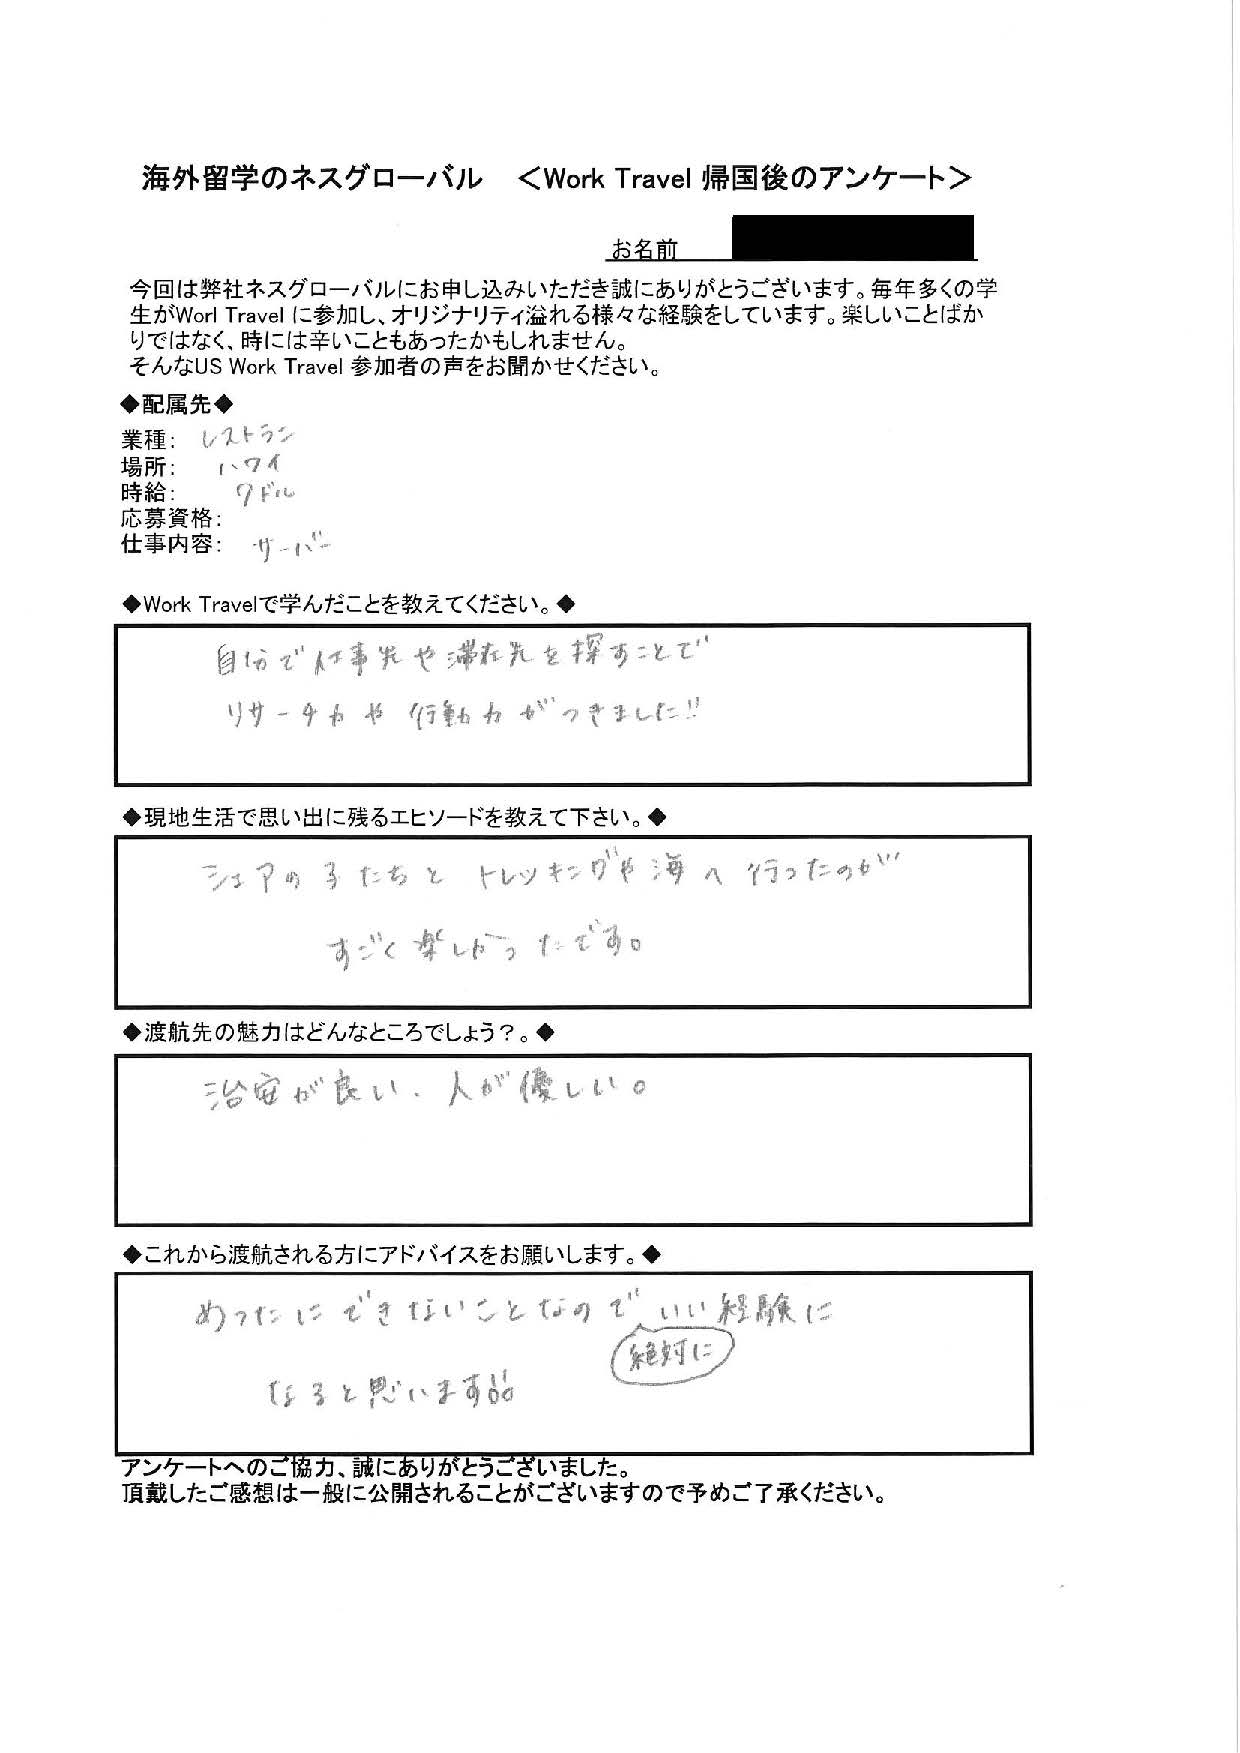 海外留学のネスグローバル　＜Work Travel 帰国後のアンケート＞
お名前
今回は弊社ネスグローバルにお申し込みいただき誠にありがとうございます。毎年多くの学
生がWorl Travel に参加し、オリジナリティ溢れる様々な経験をしています。楽しいことばか
りではなく、時には辛いこともあったかもしれません。
そんなUS Work Travel 参加者の声をお聞かせください。
◆配属先◆
業種： レストラン
場所： ハワイ
時給： 7ドル
応募資格：
仕事内容： サーバー
◆Work Travelで学んだことを教えてください。◆
自分で仕事先や滞在先を探すことで
リサーチ力や行動力がつきました!!
◆現地生活で思い出に残るエピソードを教えて下さい。◆
シェアの子たちとトレッキングや海へ行ったのが
すごく楽しかったです。
◆渡航先の魅力はどんなところでしょう？。◆
治安が良い、人が優しい。
◆これから渡航される方にアドバイスをお願いします。◆
めったにできないことなので いい経験に
絶対に
なると思います!!
アンケートへのご協力、誠にありがとうございました。
頂戴したご感想は一般に公開されることがございますので予めご了承ください。